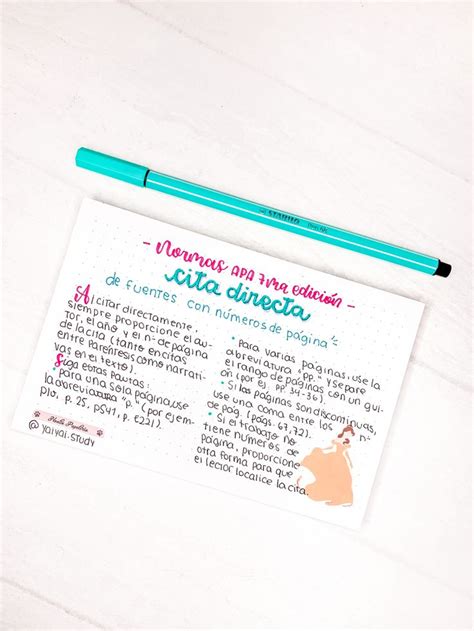 STABILO
- Normas APA 7ma edición -
cita directa
de fuentes con números de página
Al citar directamente,
siempre proporcione el au-
tor, el año y el n- de página
de la cita (tanto en citas
entre paréntesis como narrati-
vas en el texto).
Siga estas pautas:
• para una sola página, use
la abreviatura "p." (por ejem-
plo, p. 25, p. S41, p. e221).
@yaiyai.study
• para varias páginas, use la
abreviatura "pp." y separe
el rango de páginas con un gui-
ón (por ej, pp. 34-36).
• Si las páginas son discontinuas,
use una coma entre los n-
de pág. (págs. 67, 72).
• Si el trabajo no
tiene números de
página, proporcione
otra forma para que
el lector localice la cita.